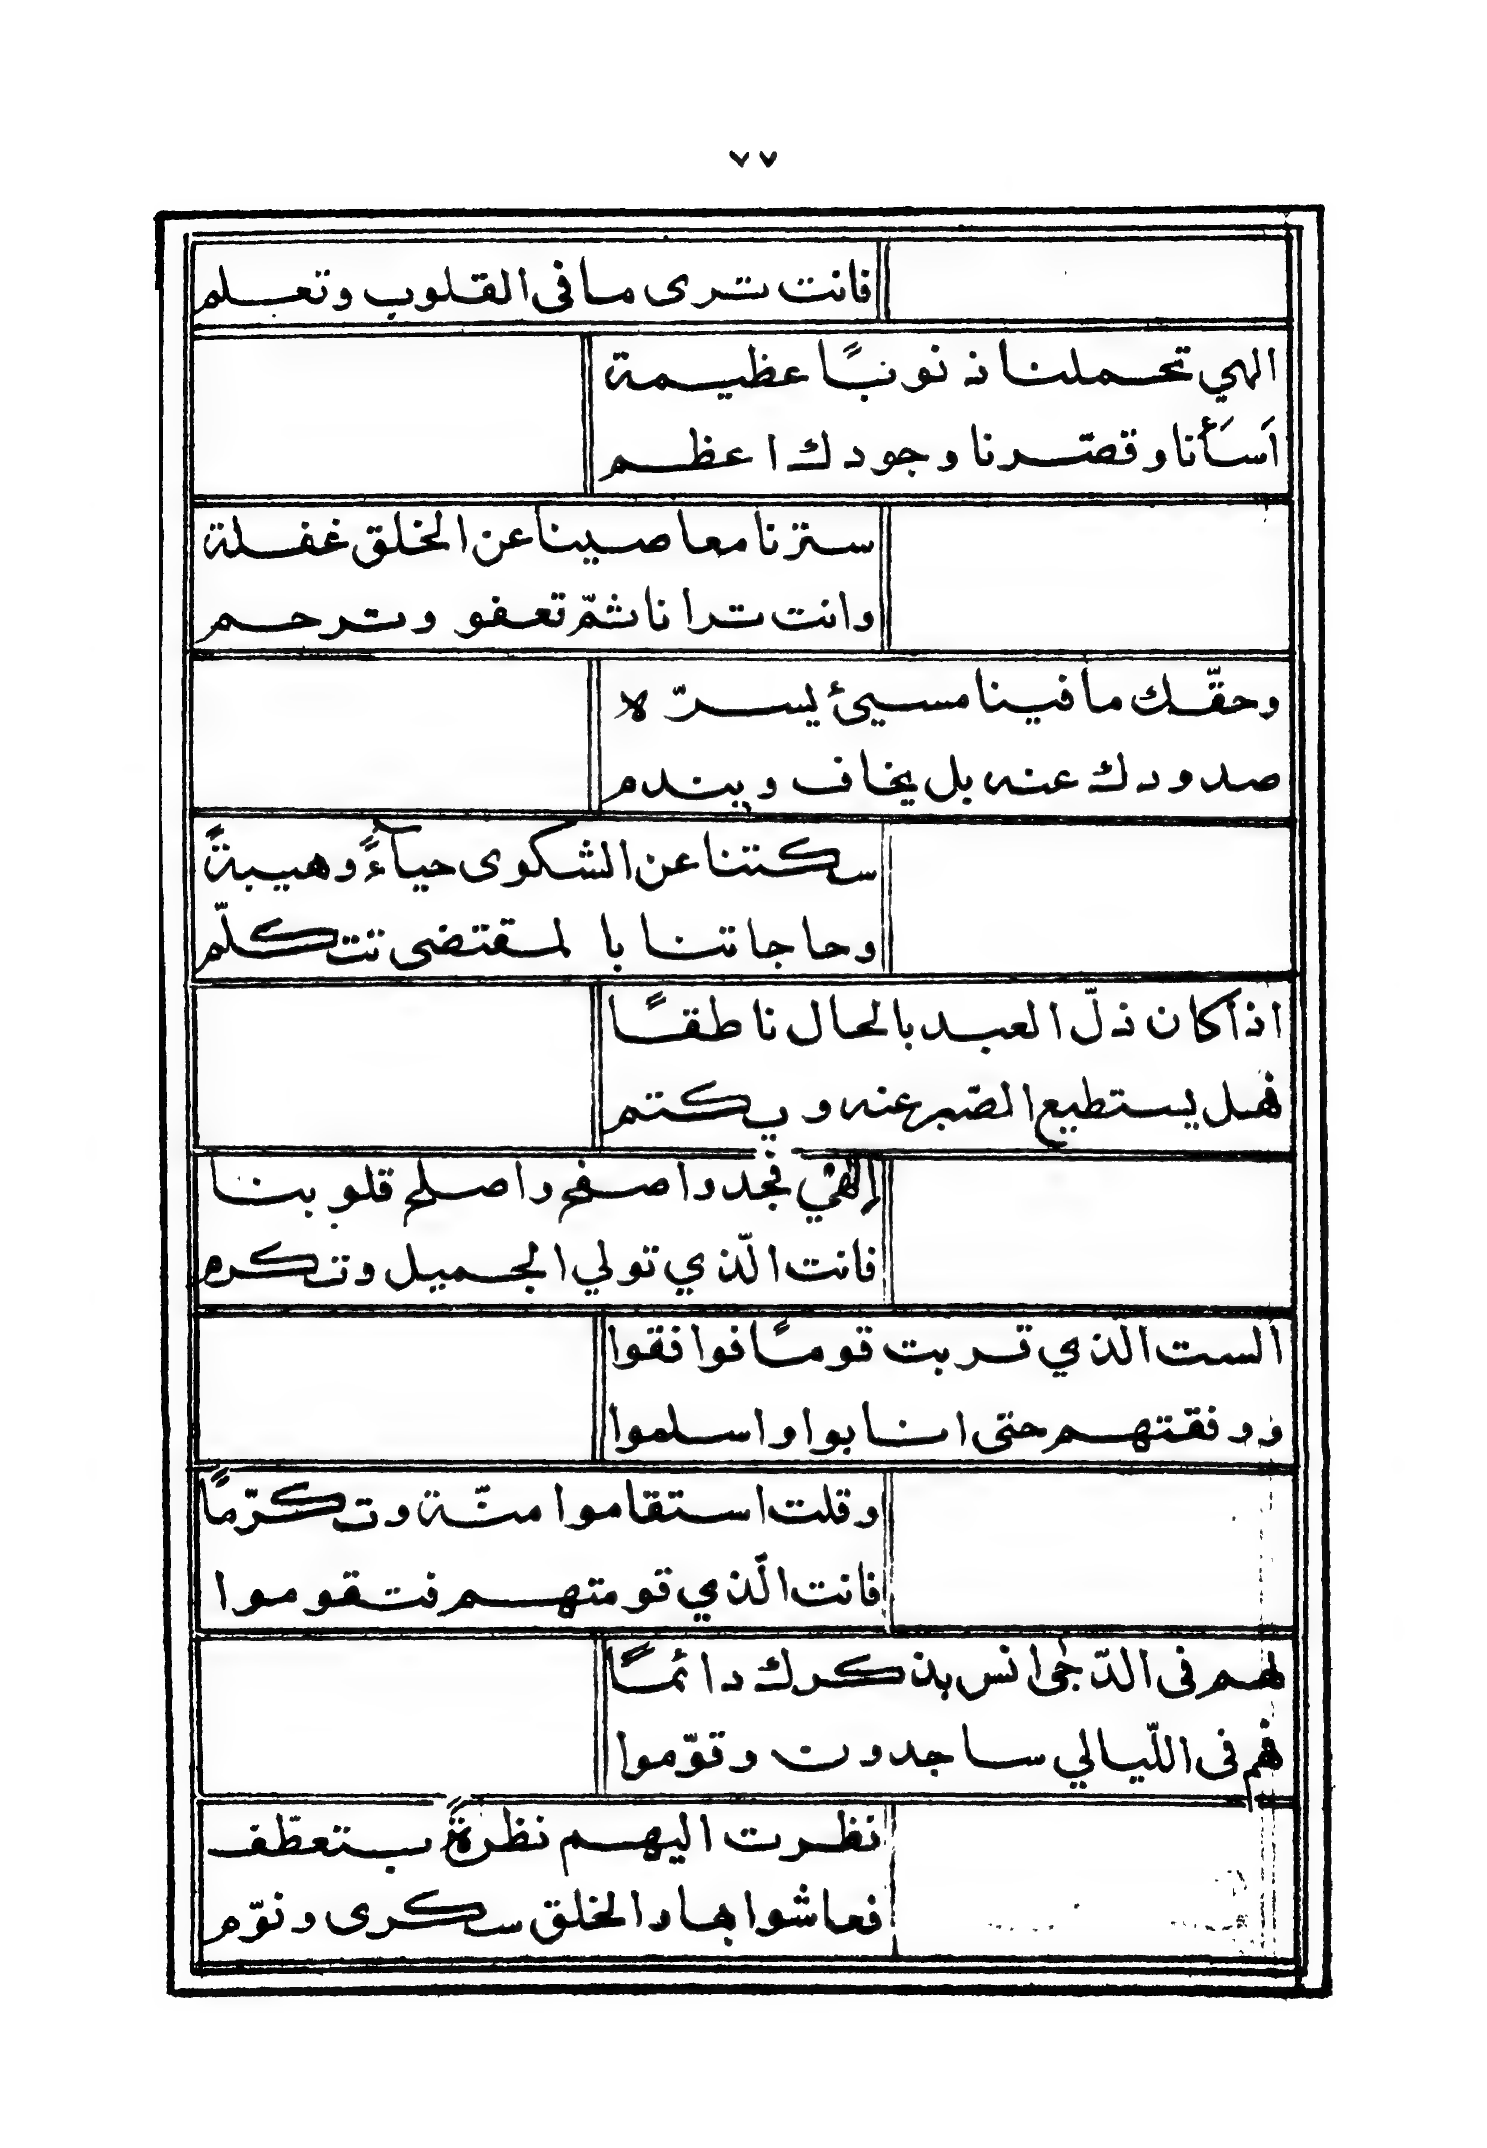 ٧٧
فانت ترى ما فى القلوب وتعلم
الهي تحملنا ذنوبًا عظيمة
اَسَأنا وقصّرنا وجودك اعظم
سترنا معاصينا عن الخلق غفلة
وانت ترانا ثمّ تعفو وترحم
وحقّك ما فينا مسيئ يسرّه
صدودك عنه بل يخاف ويندم
سكتنا عن الشكوى حيآءً وهيبةً
وحاجاتنا بالمقتضى تتكلّم
اذا كان ذلّ العبد بالحال ناطقًا
فهل يستطيع الصّبر عنه ويكتم
إلهي فجد واصفح واصلح قلوبنا
فانت الّذي تولي الجميل وتكرم
الست الذي قربت قومًا فوافقوا
ووفقتهم حتى انابوا واسلموا
وقلت استقاموا منّة وتكرّمًا
فانت الّذي قومتهم فتقوموا
لهم فى الدّجى انس بذكرك دائمًا
فهم فى اللّيالي ساجدون وقوّموا
نظرت اليهم نظرةً بتعطّف
فعاشوا بها والخلق سكرى ونوّم